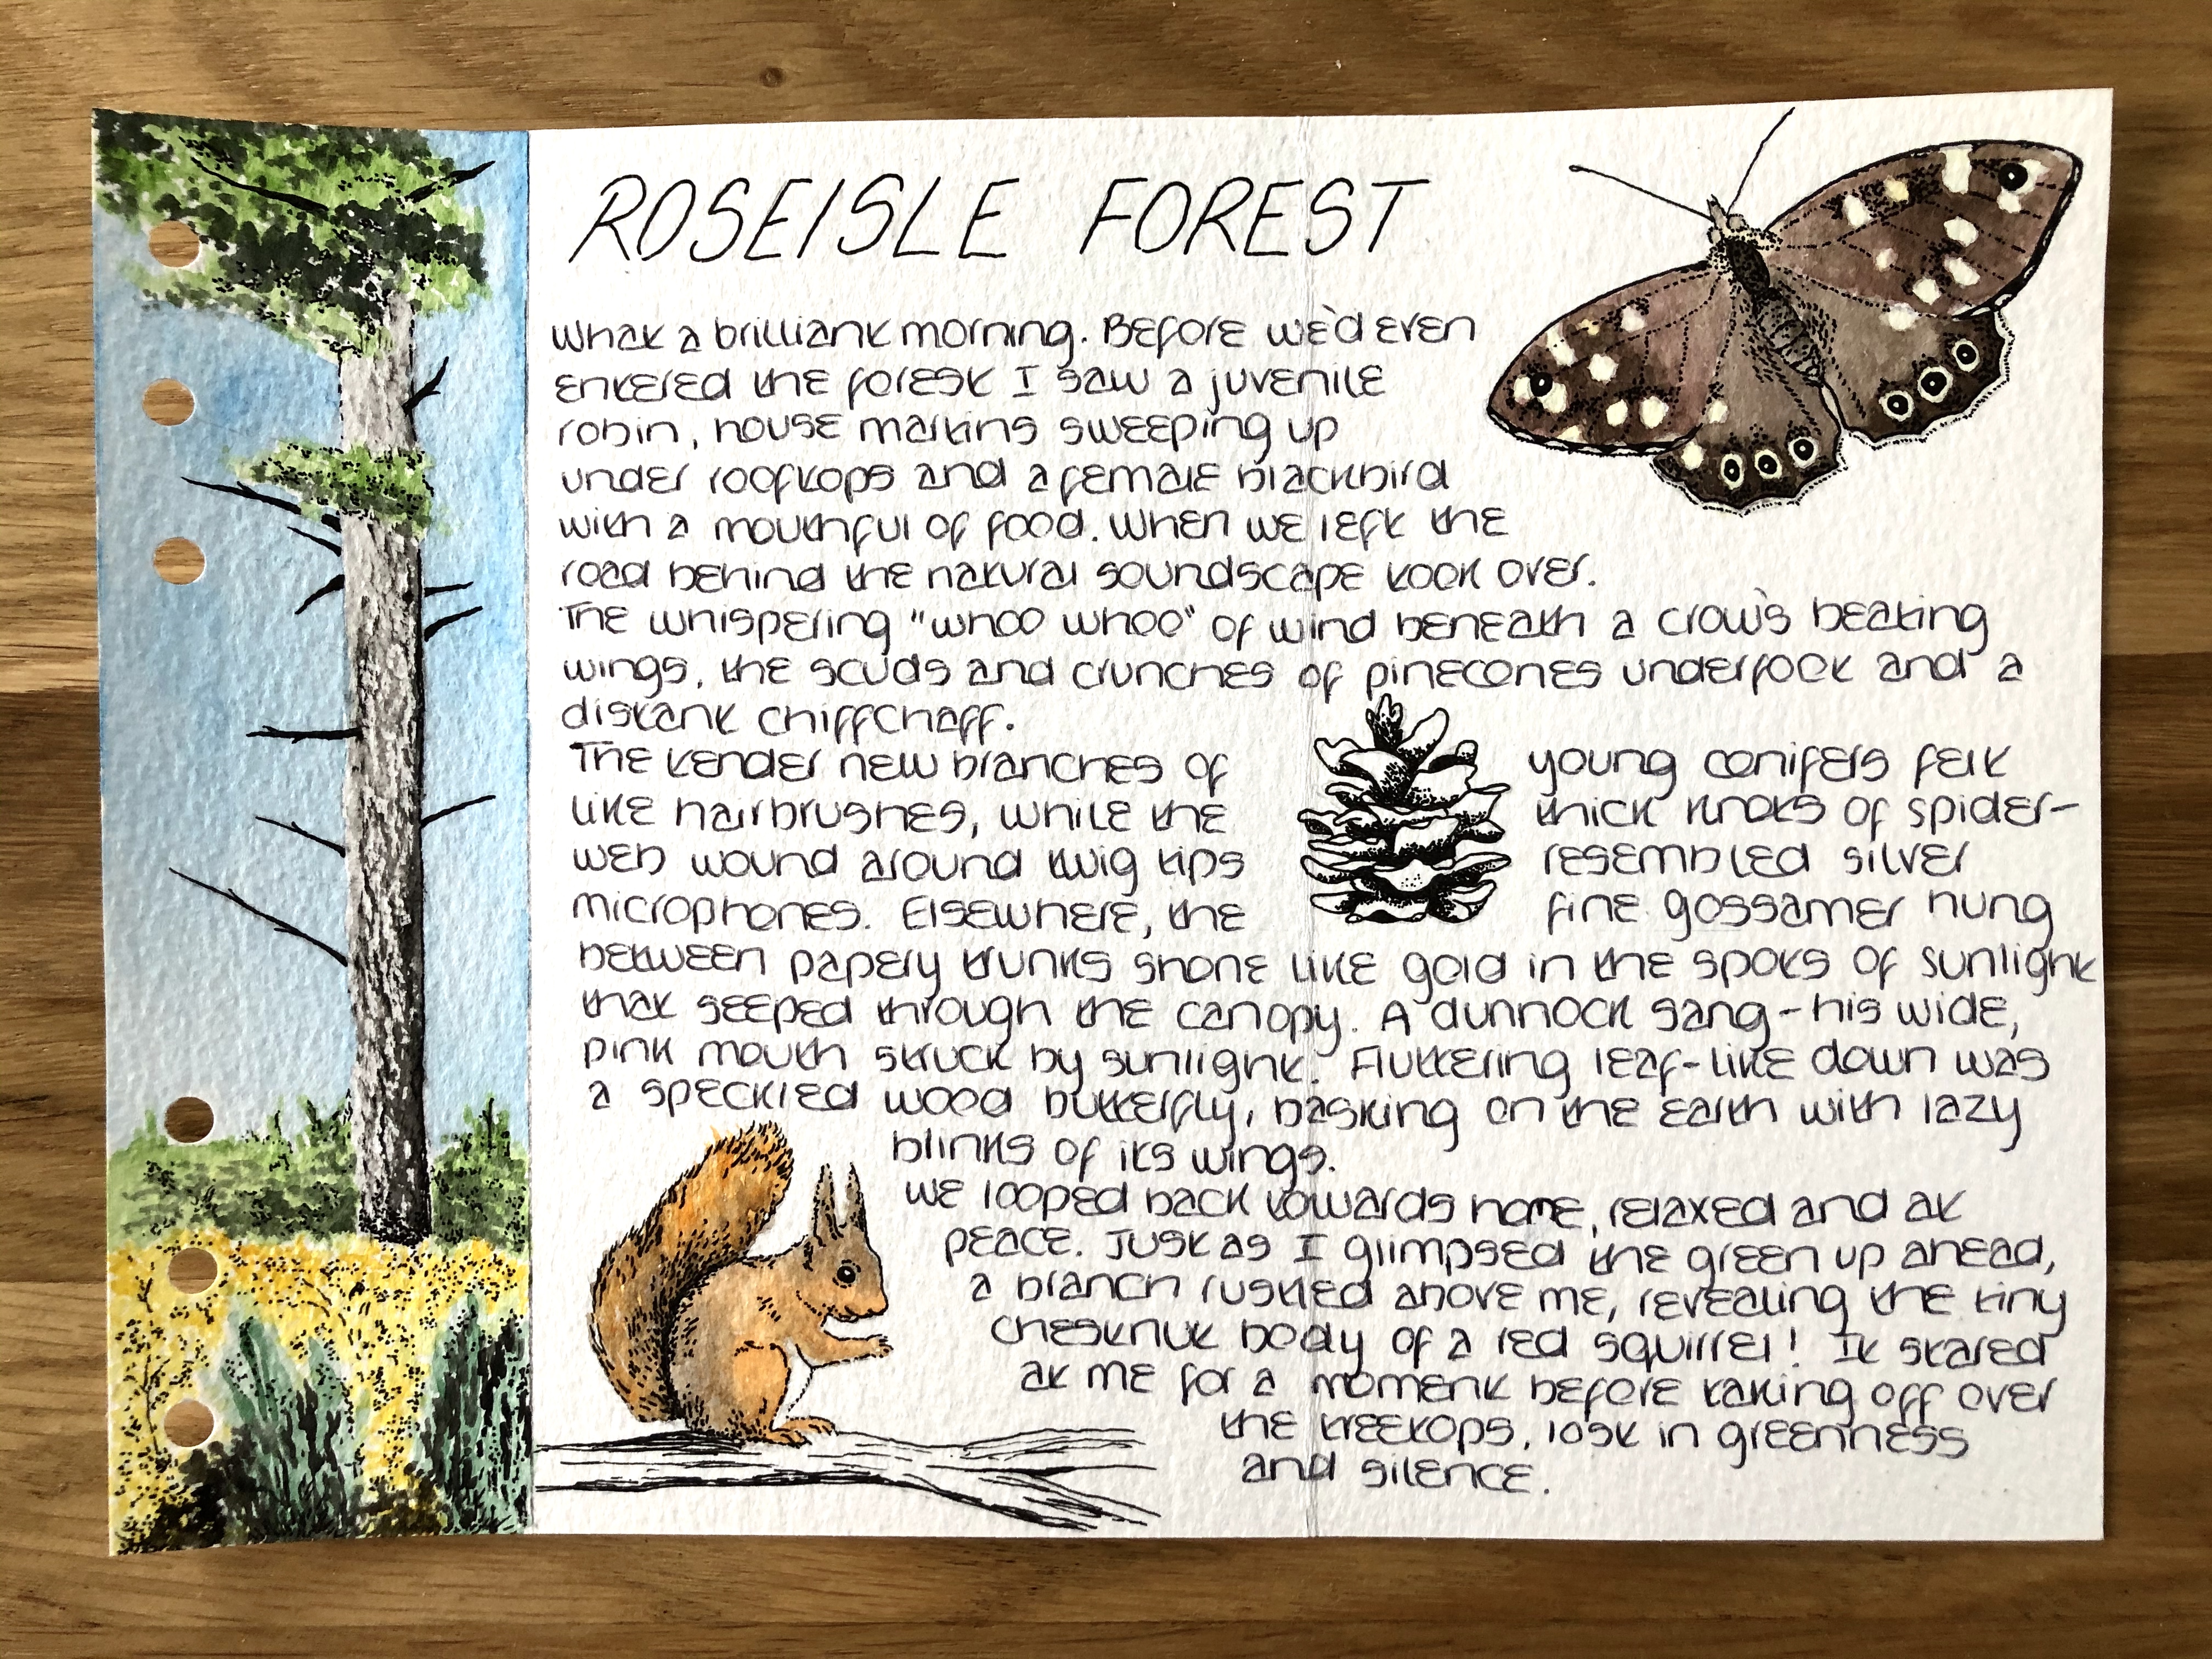 ROSEISLE FOREST
What a brilliant morning. Before we'd even
entered the forest I saw a juvenile
robin, house martins sweeping up
under rooftops and a female blackbird
with a mouthful of food. When we left the
road behind the natural soundscape took over.
The whispering "whoo whoo" of wind beneath a crow's beating
wings, the scuds and crunches of pinecones underfoot and a
distant chiffchaff.
The tender new branches of young conifers felt
like hairbrushes, while the thick knots of spider-
web wound around twig tips resembled silver
microphones. Elsewhere, the fine gossamer hung
between papery trunks shone like gold in the spots of sunlight
that seeped through the canopy. A dunnock sang - his wide,
pink mouth struck by sunlight. Fluttering leaf-like down was
a speckled wood butterfly, basking on the earth with lazy
blinks of its wings.
We looped back towards home, relaxed and at
peace. Just as I glimpsed the green up ahead,
a branch rustled above me, revealing the tiny
chestnut body of a red squirrel! It stared
at me for a moment before taking off over
the treetops, lost in greenness
and silence.